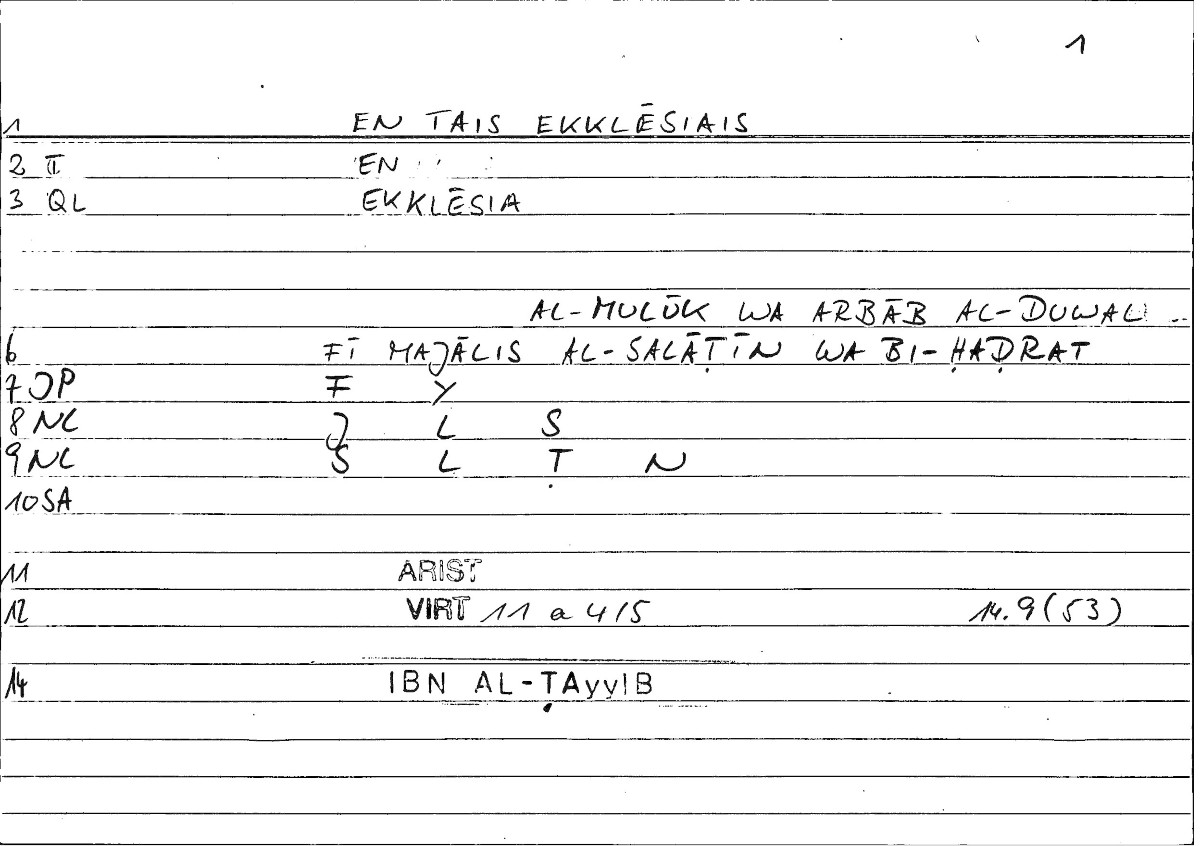 1
1 EN TAIS EKKLĒSIAIS
2 π EN
3 QL EKKLĒSIA
AL-MULŪK WA ARBĀB AL-DUWAL
6 FĪ MAJĀLIS AL-SALĀṬĪN WA BI-ḤAḌRAT
7 JP F Y
8 NC J L S
9 NC S L Ṭ N
10 SA
11 ARIST
12 VIRT 11 a 4/5 14.9(53)
14 IBN AL-ṬAyyIB